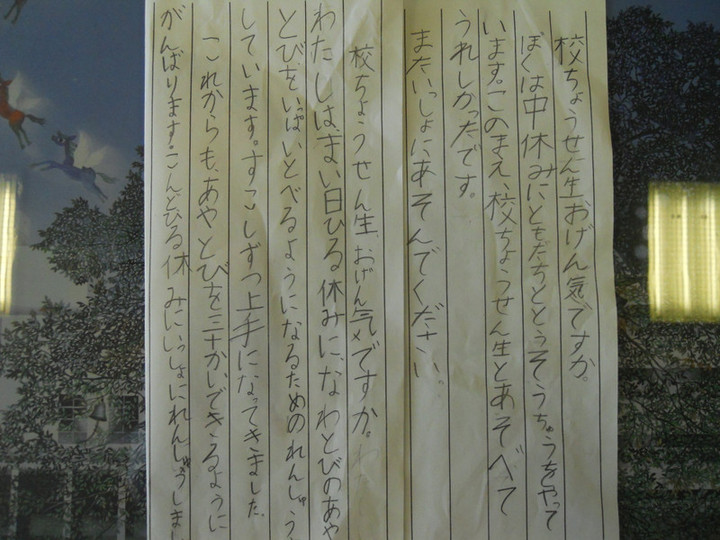 校ちょうせん生おげん気ですか。
ぼくは中休みにともだちととうそうちゅうをやって
います。このまえ、校ちょうせん生とあそべて
うれしかったです。
またいっしょにあそんでください。
校ちょうせん生、おげん気ですか。
わたしは、まい日ひる休みに、なわとびのあや
とびをいっぱいとべるようになるためのれんしゅう
しています。すこしずつ上手になってきました。
これからも、あやとびを三十かいできるように
がんばります。こんどひる休みにいっしょにれんしゅうしまし